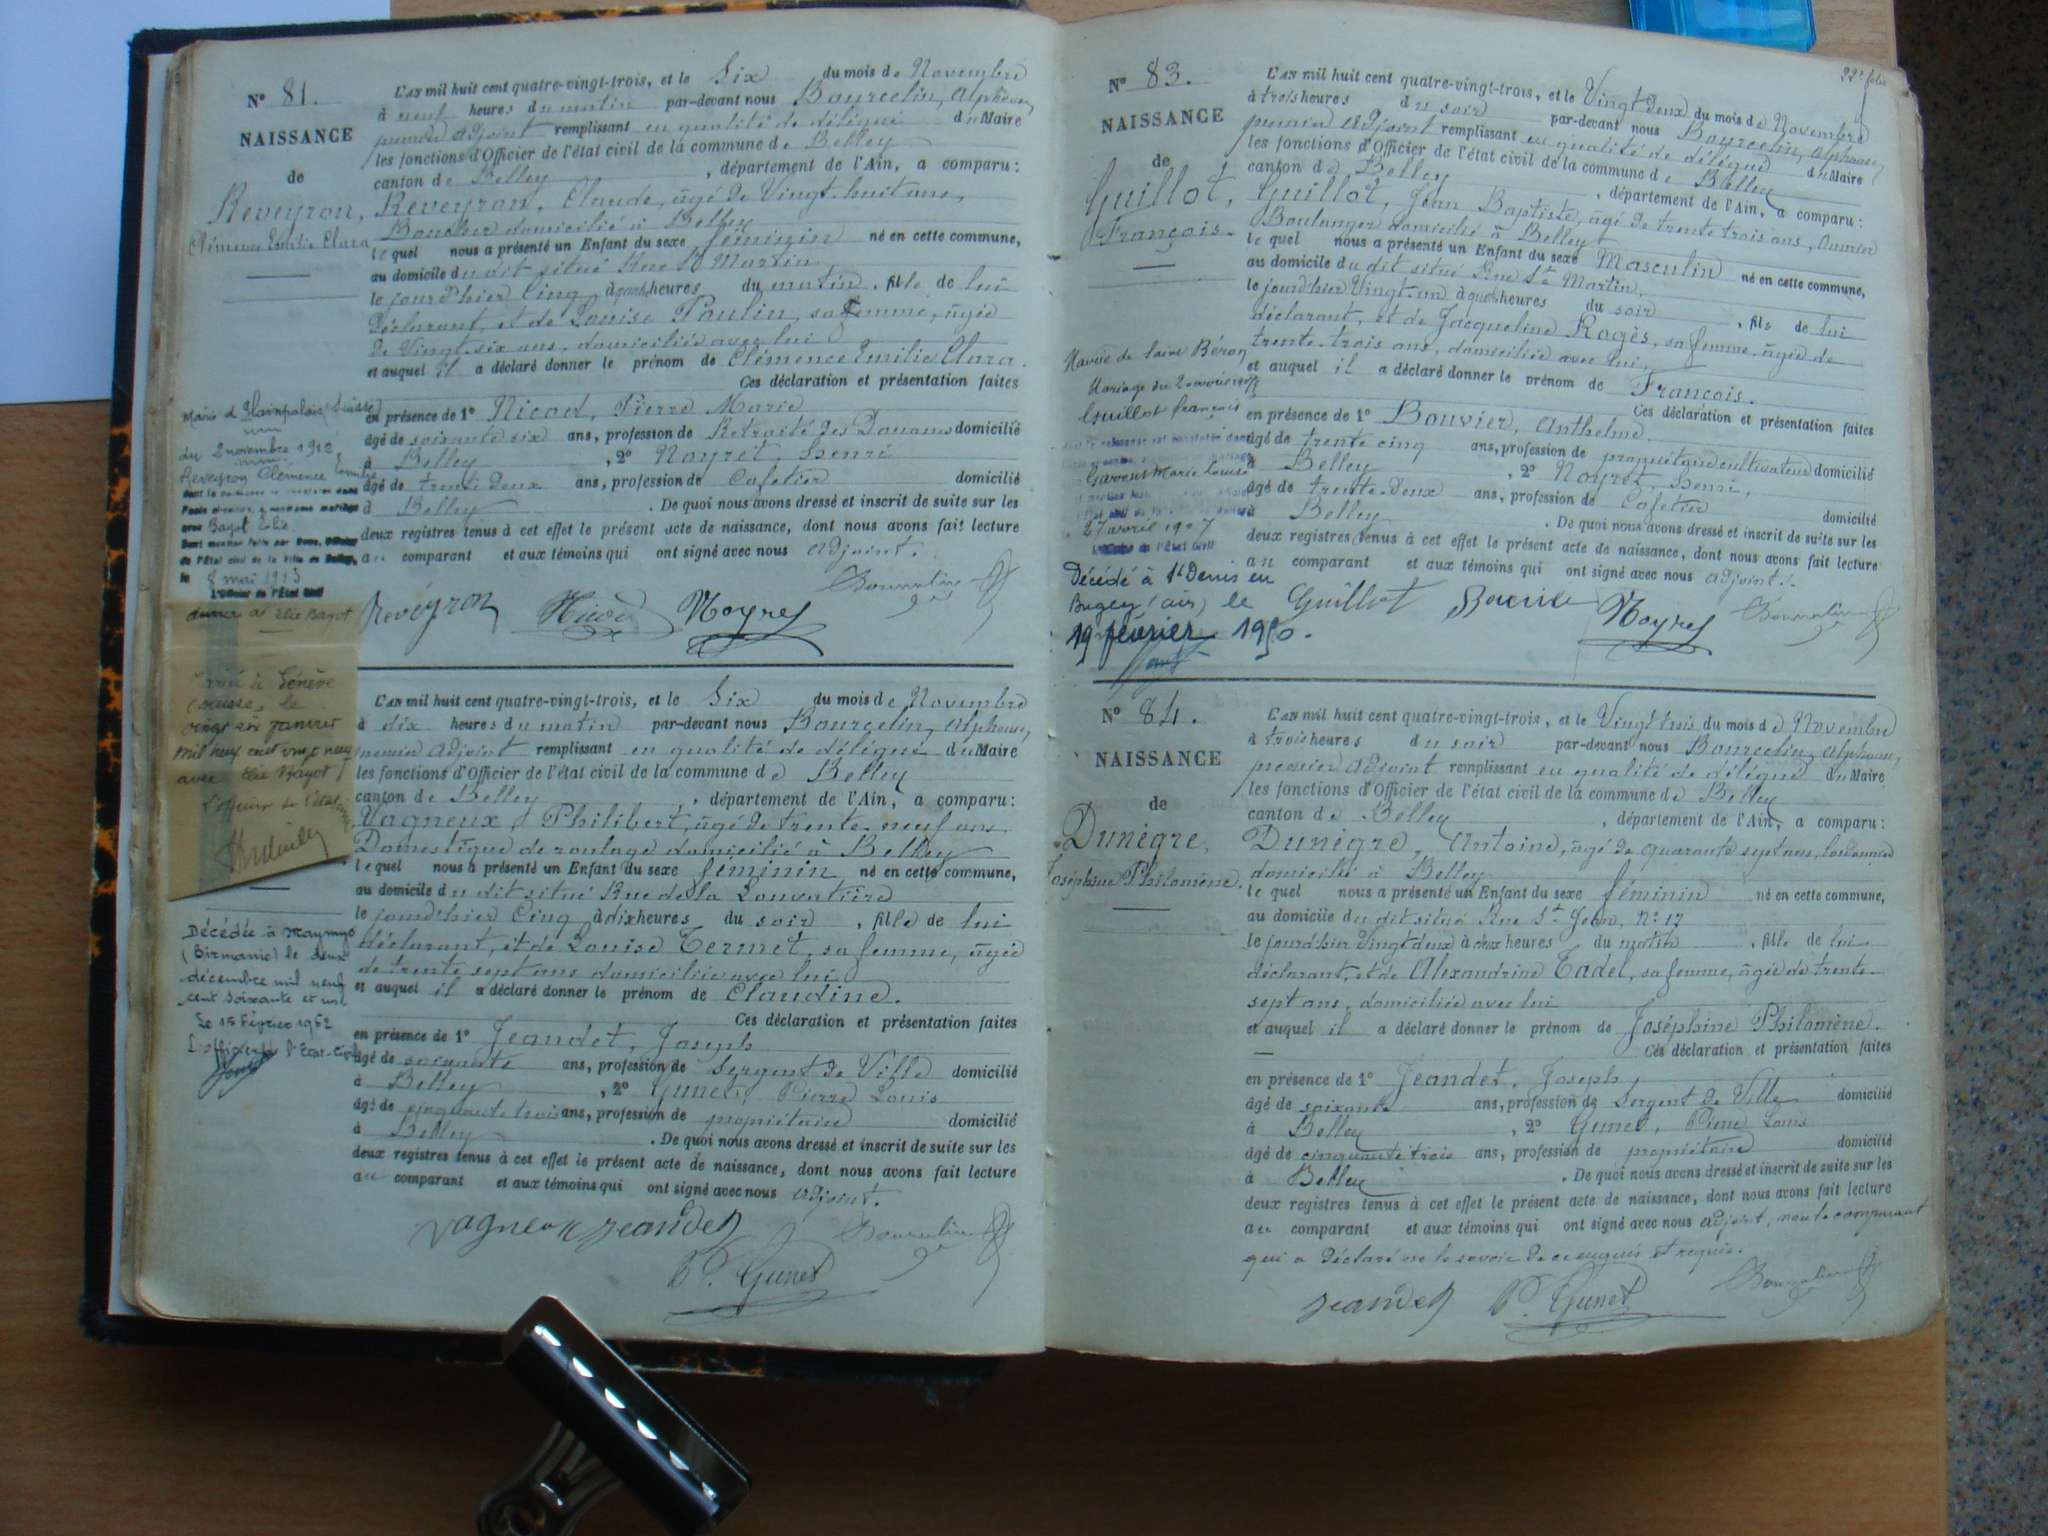 Nº 81.
NAISSANCE
de
Reveyron,
Clémence Emilie Clara
L'AN mil huit cent quatre-vingt-trois, et le Six du mois de Novembre
à neuf heures du matin par-devant nous Bourcelin, Alphonse,
premier adjoint remplissant en qualité de délégué du Maire
les fonctions d'Officier de l'état civil de la commune de Belley
canton de Belley, département de l'Ain, a comparu:
Reveyron, Claude, âgé de Vingt-huit ans,
Boucher domicilié à Belley
lequel nous a présenté un Enfant du sexe féminin né en cette commune,
au domicile du dit situé Rue St Martin
le jourd'hier Cinq, à quatre heures du matin, fille de lui
déclarant, et de Louise Poulin, sa femme, âgée
de Vingt-six ans, domiciliée avec lui
et auquel il a déclaré donner le prénom de Clémence Emilie Clara.
Ces déclaration et présentation faites
en présence de 1º Nicod, Pierre Marie
âgé de soixante six ans, profession de Retraité des Douanes domicilié
à Belley, 2º Noyret, Henri
âgé de trente deux ans, profession de Cafetier domicilié
à Belley. De quoi nous avons dressé et inscrit de suite sur les
deux registres tenus à cet effet le présent acte de naissance, dont nous avons fait lecture
au comparant et aux témoins qui ont signé avec nous adjoint.
Reveyron Nicod Noyret Bourcelin
Mairie d Plainpalais (Suisse)
du 2 novembre 1912,
Reveyron Clémence Emilie
avec Bayot Elie
Dont mention faite par Nous, Officier
de l'État civil de la Ville de Belley,
le 8 mai 1913
L'Officier de l'État Civil
Elie Bayot
Genève
(Suisse) le
vingt six janvier
mil neuf cent vingt neuf
avec Elie Bayot
L'officier de l'état civil
Décédée à Maymyo
(Birmanie) le deux
décembre mil neuf
cent soixante et un
Le 15 Février 1962
L'officier de l'Etat-Civil
L'AN mil huit cent quatre-vingt-trois, et le Six du mois de Novembre
à dix heures du matin par-devant nous Bourcelin, Alphonse,
premier adjoint remplissant en qualité de délégué du Maire
les fonctions d'Officier de l'état civil de la commune de Belley
canton de Belley, département de l'Ain, a comparu:
Vagneux, Philibert, âgé de trente-neuf ans
Domestique de roulage domicilié à Belley
lequel nous a présenté un Enfant du sexe féminin né en cette commune,
au domicile du dit situé Rue de la
le jourd'hier Cinq, à dix heures du soir, fille de lui
déclarant, et de Louise Termet, sa femme, âgée
de trente sept ans domiciliée avec lui
et auquel il a déclaré donner le prénom de Claudine.
Ces déclaration et présentation faites
en présence de 1º Jeandet, Joseph
âgé de soixante ans, profession de Sergent de Ville domicilié
à Belley, 2º Gunet, Pierre Louis
âgé de cinquante trois ans, profession de propriétaire domicilié
à Belley. De quoi nous avons dressé et inscrit de suite sur les
deux registres tenus à cet effet le présent acte de naissance, dont nous avons fait lecture
au comparant et aux témoins qui ont signé avec nous adjoint.
Vagneux Jeandet Bourcelin
P. Gunet
22e folio
Nº 83.
NAISSANCE
de
Guillot,
François.
L'AN mil huit cent quatre-vingt-trois, et le Vingt deux du mois de Novembre
à trois heures du soir par-devant nous Bourcelin, Alphonse,
premier adjoint remplissant en qualité de délégué du Maire
les fonctions d'Officier de l'état civil de la commune de Belley
canton de Belley, département de l'Ain, a comparu:
Guillot, Jean Baptiste, âgé de trente trois ans, Ouvrier
Boulanger domicilié à Belley
lequel nous a présenté un Enfant du sexe Masculin né en cette commune,
au domicile du dit situé Rue St Martin,
le jourd'hier Vingt-un à quatre heures du soir, fils de lui
déclarant, et de Jacqueline Rogès, sa femme, âgée de
trente-trois ans, domiciliée avec lui,
et auquel il a déclaré donner le prénom de François.
Ces déclaration et présentation faites
en présence de 1º Bouvier, Anthelme
âgé de trente cinq ans, profession de propriétaire cultivateur domicilié
à Belley, 2º Noyret, Henri,
âgé de trente-deux ans, profession de Cafetier domicilié
à Belley. De quoi nous avons dressé et inscrit de suite sur les
deux registres tenus à cet effet le présent acte de naissance, dont nous avons fait lecture
au comparant et aux témoins qui ont signé avec nous adjoint.
Guillot Bouvier Noyret Bourcelin
Mairie de Saint Béron
Mariage du 20 avril 1907
Guillot François
Marie Louise
27 avril 1907
L'Officier de l'État Civil
Décédé à St Denis en
Bugey (ain) le
19 février 1950.
Nº 84.
NAISSANCE
de
Dunègre,
Joséphine Philomène.
L'AN mil huit cent quatre-vingt-trois, et le Vingt trois du mois de Novembre
à trois heures du soir par-devant nous Bourcelin, Alphonse,
premier adjoint remplissant en qualité de délégué du Maire
les fonctions d'Officier de l'état civil de la commune de Belley
canton de Belley, département de l'Ain, a comparu:
Dunègre, Antoine, âgé de quarante sept ans, Cordonnier
domicilié à Belley
lequel nous a présenté un Enfant du sexe féminin né en cette commune,
au domicile du dit situé Rue St Jean, Nº 17
le jourd'hier Vingt deux à deux heures du matin, fille de lui
déclarant, et de Alexandrine Tadel, sa femme, âgée de trente-
sept ans, domiciliée avec lui
et auquel il a déclaré donner le prénom de Joséphine Philomène.
Ces déclaration et présentation faites
en présence de 1º Jeandet, Joseph
âgé de soixante ans, profession de Sergent de Ville domicilié
à Belley, 2º Gunet, Pierre Louis
âgé de cinquante trois ans, profession de propriétaire domicilié
à Belley. De quoi nous avons dressé et inscrit de suite sur les
deux registres tenus à cet effet le présent acte de naissance, dont nous avons fait lecture
au comparant et aux témoins qui ont signé avec nous adjoint, non le comparant
qui a déclaré ne le savoir de ce enquis et requis.
Jeandet P. Gunet Bourcelin